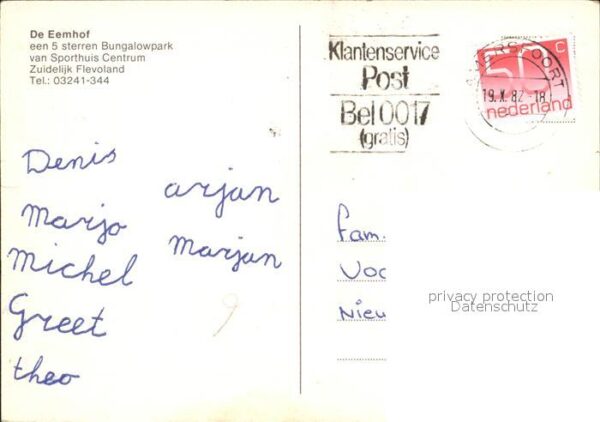 De Eemhof
een 5 sterren Bungalowpark
van Sporthuis Centrum
Zuidelijk Flevoland
Tel.: 03241-344
Klantenservice
Post
Bel 0017
(gratis)
AMERSFOORT
19.X.82.-18
50 c
nederland
Denis
arjan
Marjo
Marjan
Michel
Greet
theo
fam.
Voc
Nieu
privacy protection
Datenschutz